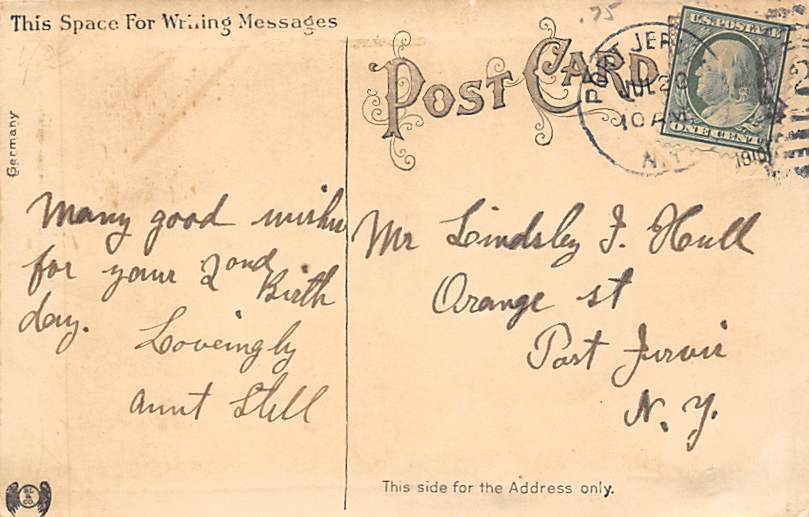 This Space For Writing Messages
Germany
Many good wishes
for your 2ond
Birth
day.
Loveingly
Aunt Stell
.75
POST CARD
PORT JER
JUL 20
10 AM
N.Y.
1910
U.S. POSTAGE
ONE CENT
Mr Lindsley F. Hull
Orange St
Port Jervis
N. Y.
This side for the Address only.